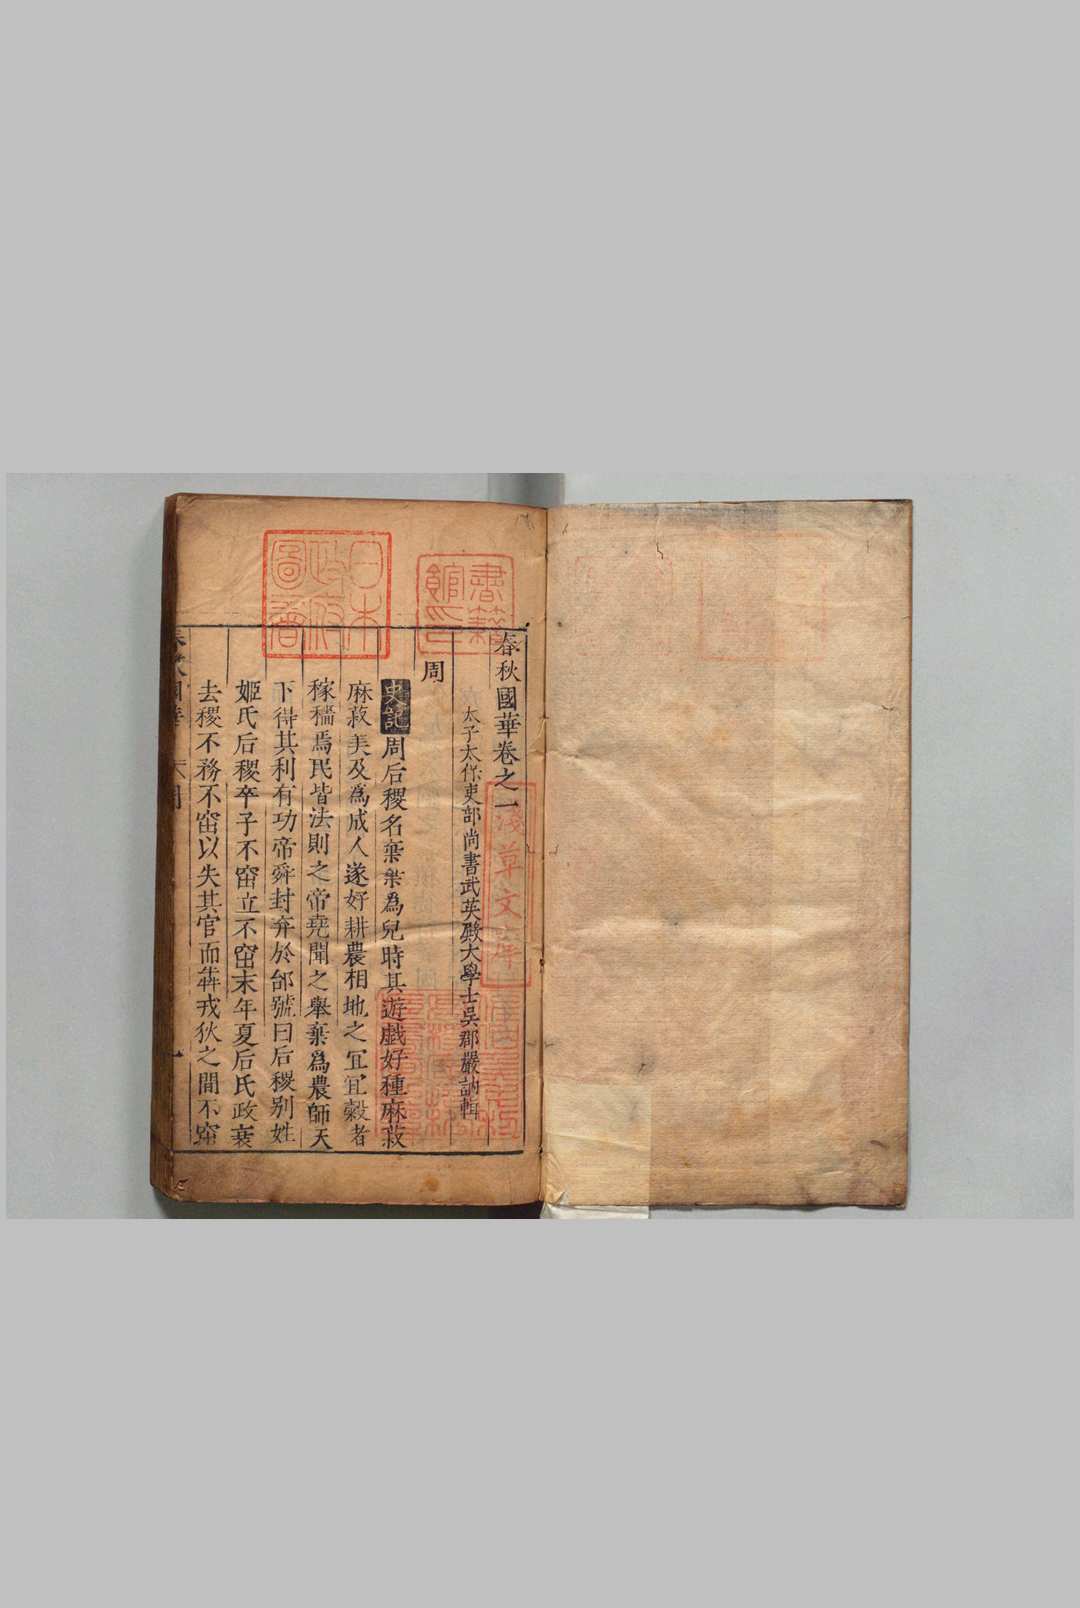 春秋國華卷之一
太子太保吏部尚書武英殿大學士吳郡嚴訥輯
周
史記周后稷名棄棄爲兒時其遊戯好種麻菽
麻菽美及爲成人遂好耕農相地之冝冝糓者
稼穡焉民皆法則之帝堯聞之舉棄爲農師天
下得其利有功帝舜封弃於邰號曰后稷别姓
姬氏后稷卒子不窋立不窋末年夏后氏政衰
去稷不務不窋以失其官而犇戎狄之間不窋
書籍館印
日本政府圖書
淺草文庫